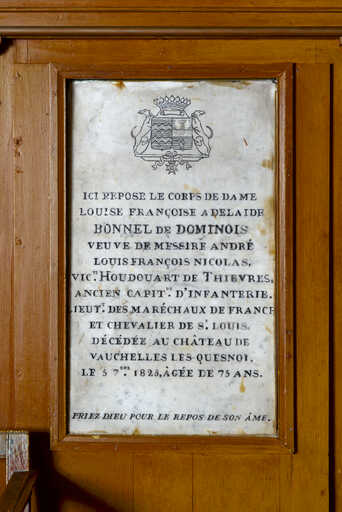 ICI REPOSE LE CORPS DE DAME
LOUISE FRANÇOISE ADELAIDE
BONNEL DE DOMINOIS
VEUVE DE MESSIRE ANDRÉ
LOUIS FRANÇOIS NICOLAS,
VIC.TE HOUDOUART DE THIEVRES,
ANCIEN CAPIT.NE D'INFANTERIE.
LIEUT.T DES MARÉCHAUX DE FRANCE
ET CHEVALIER DE S.T LOUIS.
DÉCÉDÉE AU CHÂTEAU DE
VAUCHELLES LES QUESNOI,
LE 5 7.BRE 1825, ÂGÉE DE 75 ANS.
PRIEZ DIEU POUR LE REPOS DE SON ÂME.